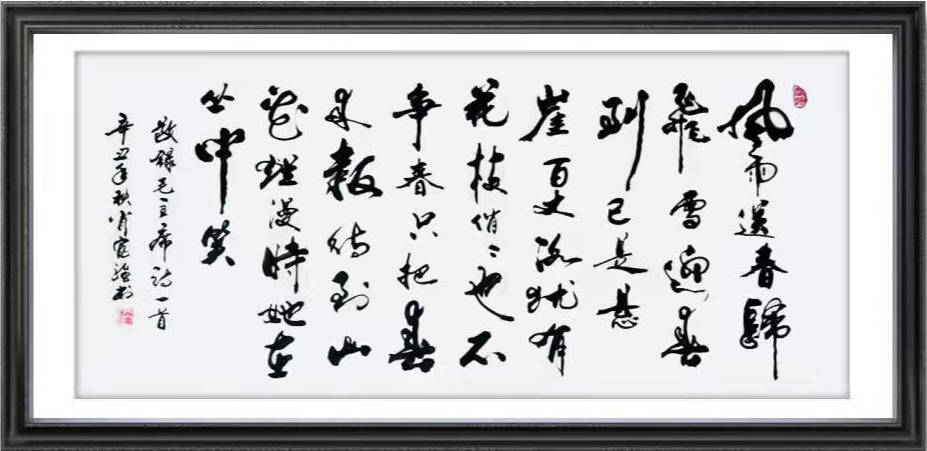 風雨送春歸
飛雪迎春
到已是悬
崖百丈冰犹有
花枝俏〻也不
争春只把春
来報待到山
花爛漫時她在
丛中笑
敬録毛主席诗一首
辛丑年秋